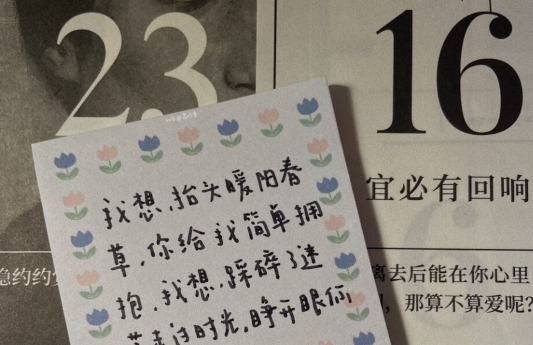 23
16
宜必有回响
我想,抬头暖阳春
草,你给我简单拥
抱,我想,踩碎了迷
茫走过时光,睁开眼你
隐约约
离去后能在你心里
,那算不算爱呢?